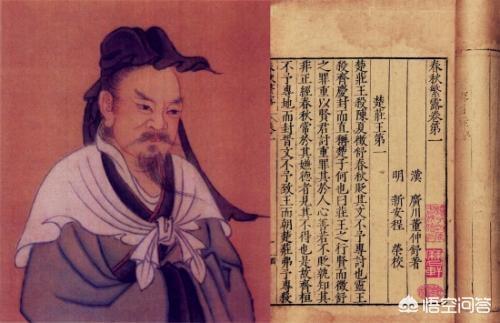 春秋繁露卷第一
漢 廣川董仲舒著
明 新安程榮校
楚莊王第一
楚莊王殺陳夏徵舒春秋貶其文不予專討也靈王
殺齊慶封而直稱楚子何也曰莊王之行賢而徵舒
之罪重以賢君討重罪其於人心善若不貶孰知其
非正經春秋常於其嫌得者見其不得也是故齊桓
不予專地而封晉文不予致王而朝楚莊弗予專殺
悟空问答